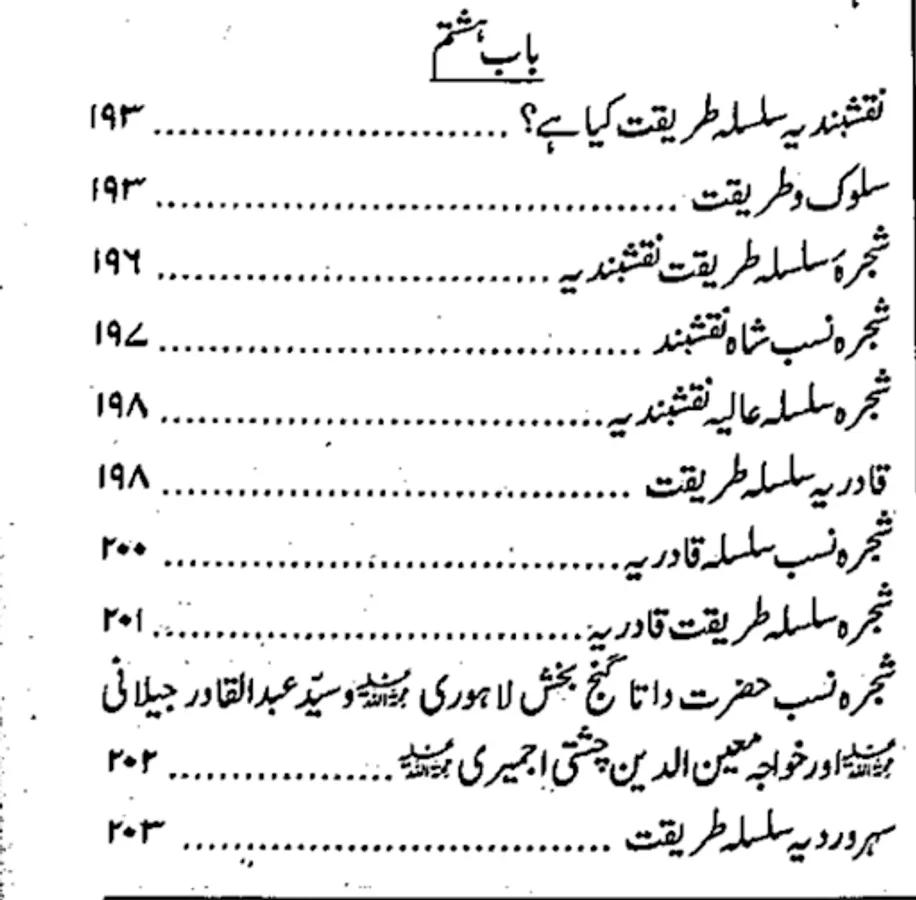 باب ہشتم
نقشبندیہ سلسلہ طریقت کیا ہے؟ ........ ۱۹۳
سلوک و طریقت ........ ۱۹۳
شجرۂ سلسلہ طریقت نقشبندیہ ........ ۱۹۶
شجرہ نسب شاہ نقشبند ........ ۱۹۷
شجرہ سلسلہ عالیہ نقشبندیہ ........ ۱۹۸
قادریہ سلسلہ طریقت ........ ۱۹۸
شجرہ نسب سلسلہ قادریہ ........ ۲۰۰
شجرہ سلسلہ طریقت قادریہ ........ ۲۰۱
شجرہ نسب حضرت داتا گنج بخش لاہوری رحمۃ اللہ علیہ و سیّد عبدالقادر جیلانی
رحمۃ اللہ علیہ اور خواجہ معین الدین چشتی اجمیری رحمۃ اللہ علیہ ........ ۲۰۲
سہروردیہ سلسلہ طریقت ........ ۲۰۳